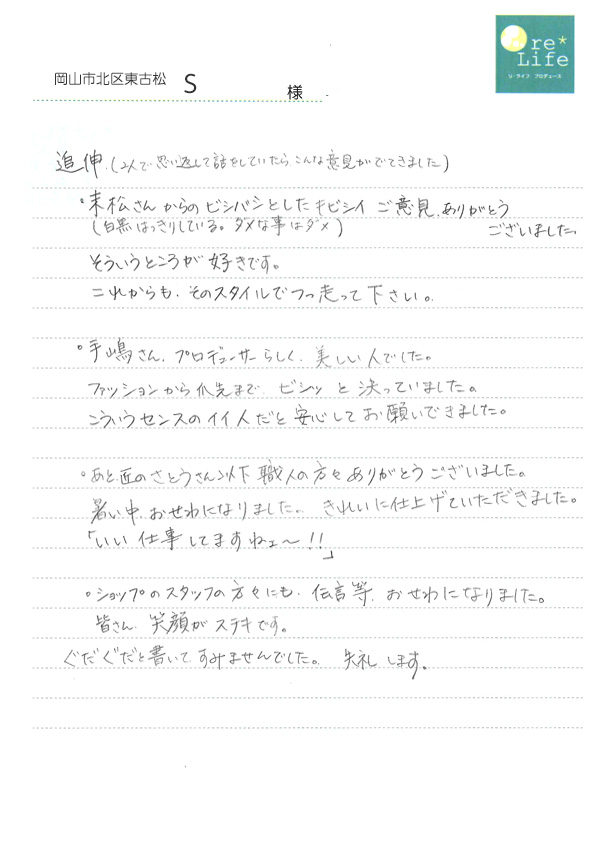 re*
Life
リ・ライフ プロデュース
岡山市北区東古松 S 様
追伸.(2人で思い返して話をしていたらこんな意見がでてきました)
・末松さんからのビシバシとしたキビシイ ご意見、ありがとう
ございました。
(白黒はっきりしている。ダメな事はダメ)
そういうところが好きです。
これからも、そのスタイルでつっ走って下さい。
・手嶋さん、プロデューサーらしく、美しい人でした。
ファッションから爪先まで、ビシッと決っていました。
こういうセンスのイイ人だと安心してお願いできました。
・あと、匠のさとうさん以下 職人の方々ありがとうございました。
暑い中、おせわになりました。きれいに仕上げていただきました。
「いい仕事してますねェ〜!!」
・ショップのスタッフの方々にも、伝言等、おせわになりました。
皆さん、笑顔がステキです。
ぐだぐだと書いてすみませんでした。失礼します。